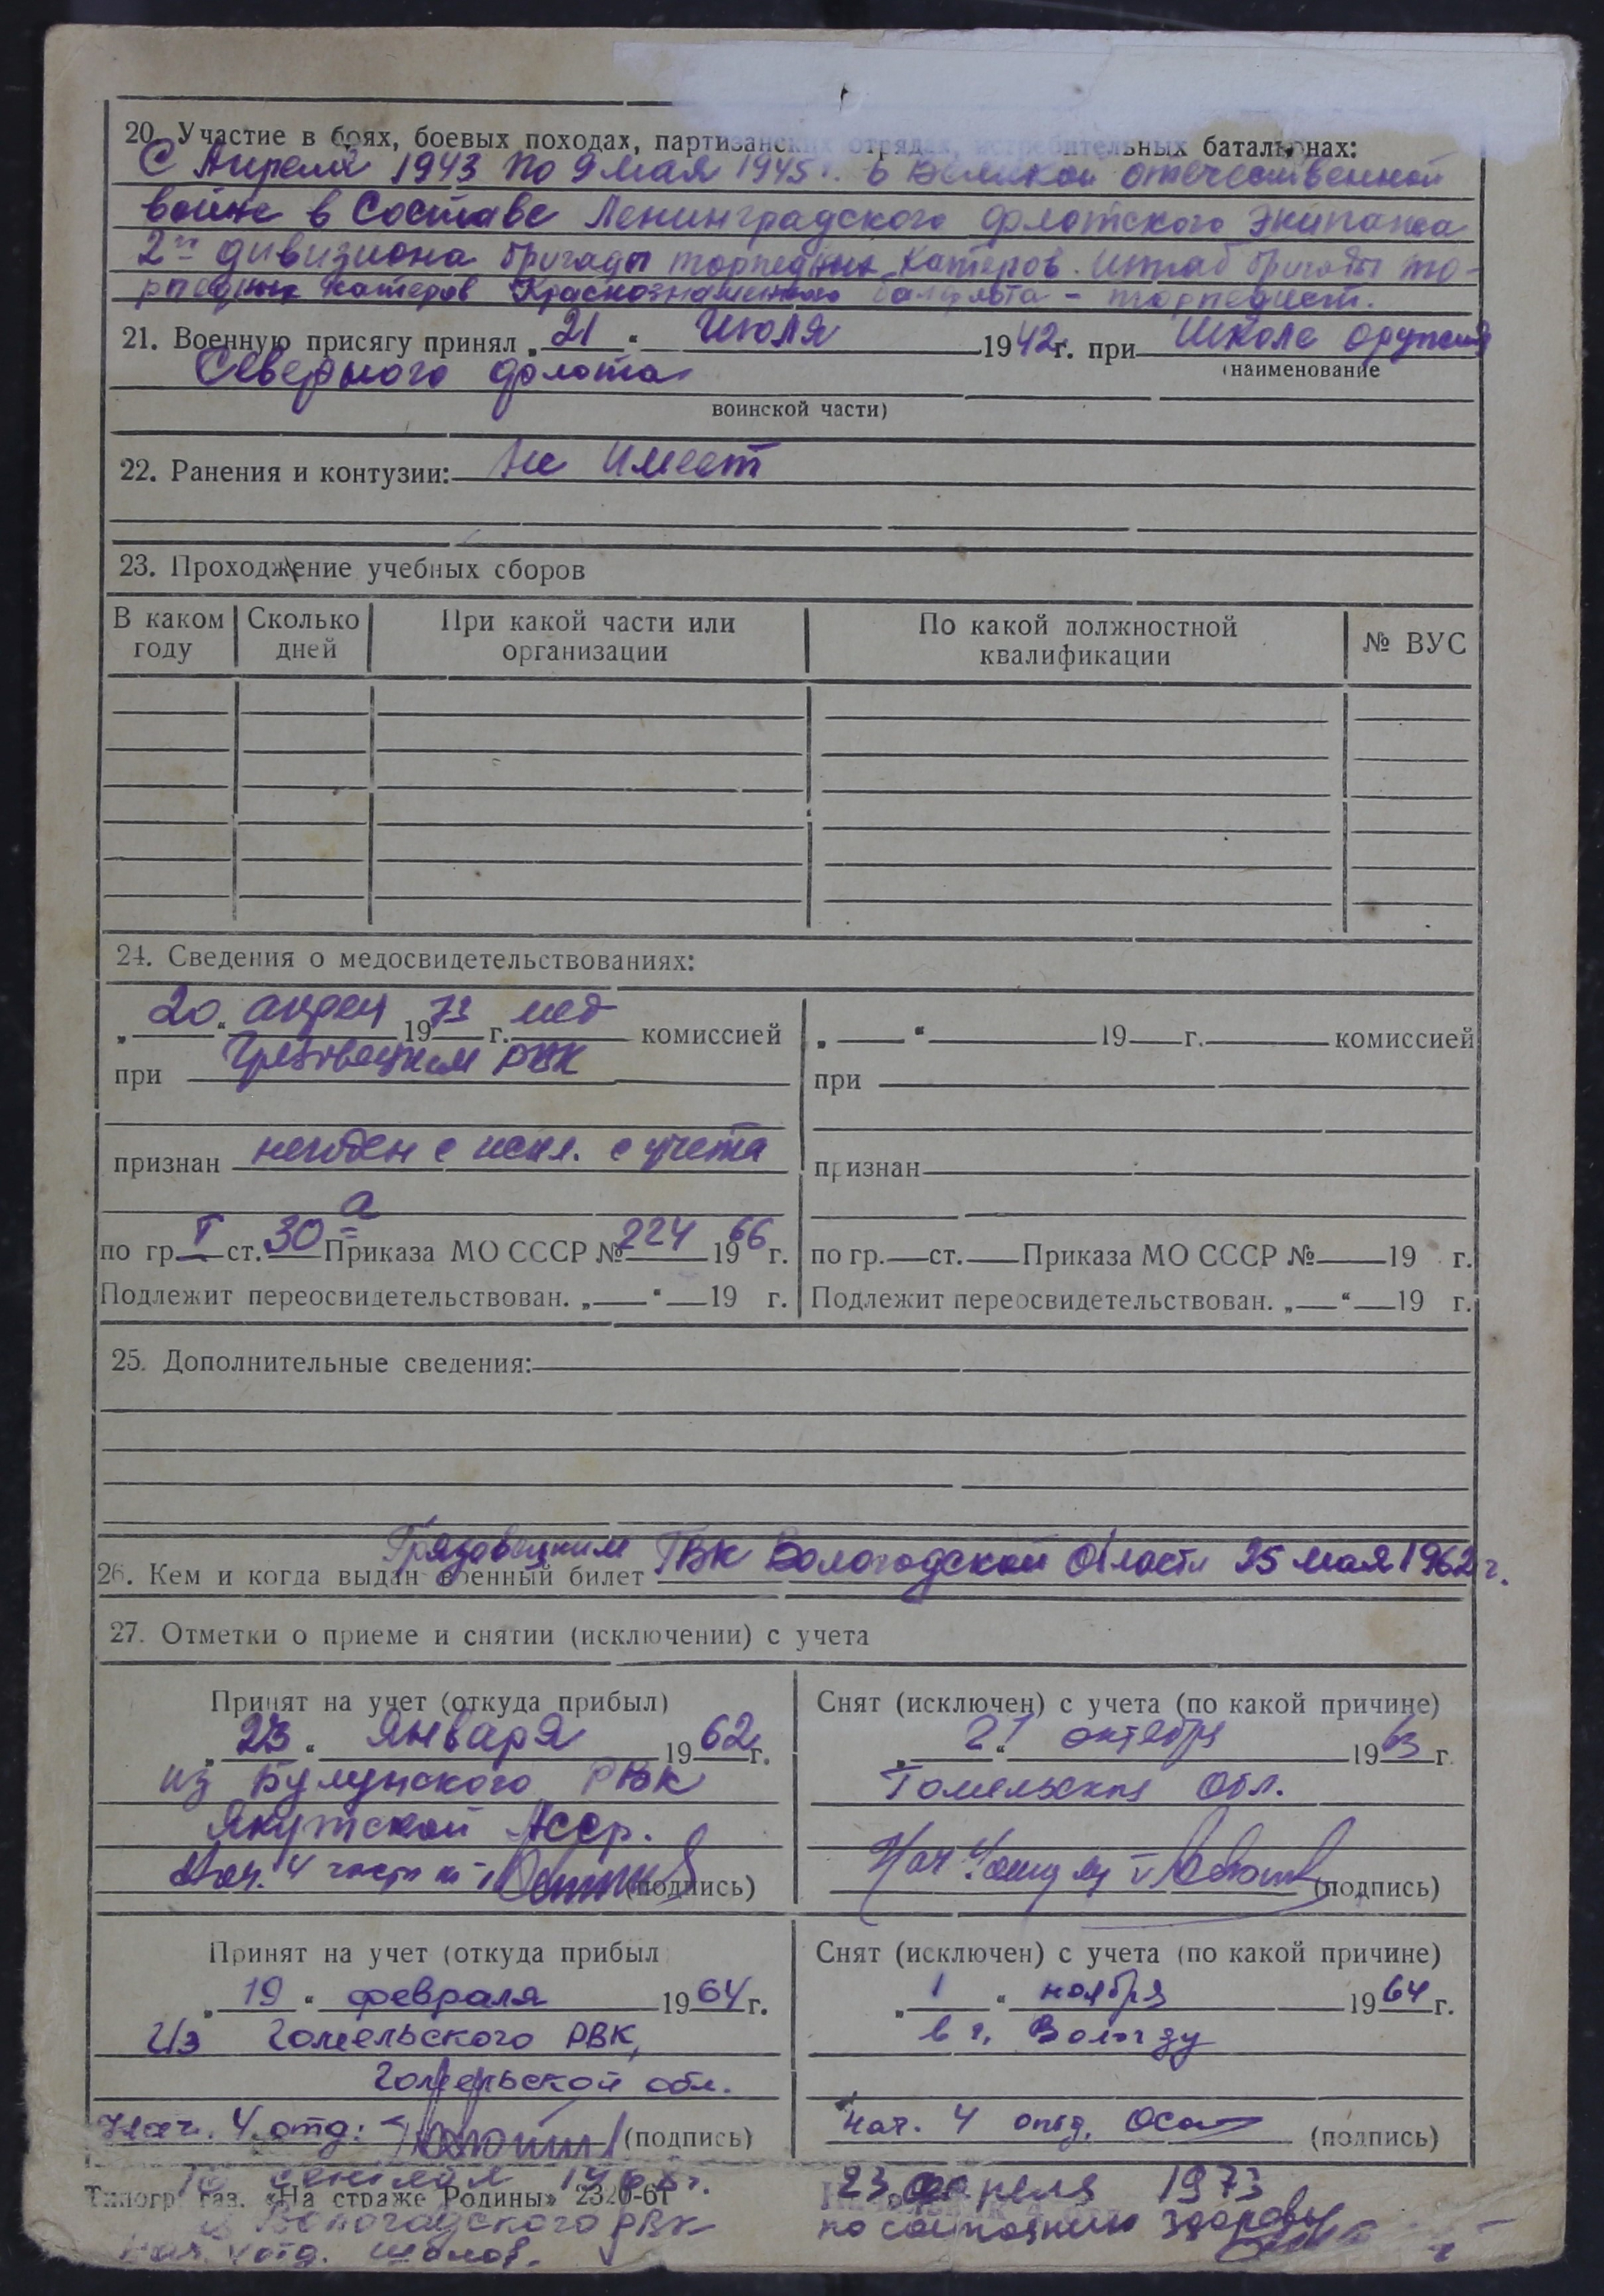 20. Участие в боях, боевых походах, партизанских отрядах, истребительных батальонах:
С Апреля 1943 по 9 мая 1945 г. в Великой отечественной
войне в составе Ленинградского флотского экипажа
2го дивизиона бригады торпедных катеров. Штаб бригады то-
рпедных катеров Краснознаменного балтфлота - торпедист.
21. Военную присягу принял „21“ Июля 1942г. при Школе оружия
(наименование
Северного флота
воинской части)
22. Ранения и контузии: Не имеет
23. Прохождение учебных сборов
В каком году Сколько дней При какой части или организации По какой должностной квалификации № ВУС
24. Сведения о медосвидетельствованиях:
„20“ апреля 1973 г. мед комиссией
при Грязовецким РВК
признан негоден с искл. с учета
по гр. I ст. 30 а Приказа МО СССР № 224 1966 г.
Подлежит переосвидетельствован. „ “ 19 г.
„ “ 19 г. комиссией
при
признан
по гр. ст. Приказа МО СССР № 19 г.
Подлежит переосвидетельствован. „ “ 19 г.
25. Дополнительные сведения:
26. Кем и когда выдан военный билет Грязовецким РВК Вологодской области 25 мая 1962 г.
27. Отметки о приеме и снятии (исключении) с учета
Принят на учет (откуда прибыл)
„23“ Января 1962 г.
из Булунского РВК
Якутской Асср.
Нач. 4 части (подпись)
Снят (исключен) с учета (по какой причине)
„21“ октября 1963 г.
Гомельская Обл.
Нач (подпись)
Принят на учет (откуда прибыл
„19“ февраля 1964 г.
Из Гомельского РВК,
Гомельской обл.
Нач. 4 отд: (подпись)
Снят (исключен) с учета (по какой причине)
„1“ ноября 1964 г.
в г. Вологду
Нач. 4 отд. (подпись)
Типогр. газ. «На страже Родины» 2320-61
Вологодского РВК
Нач. 4 отд.
23 апреля 1973
по состоянию здоровья